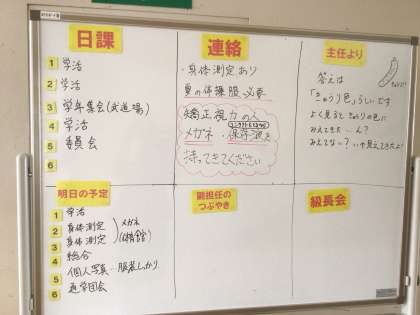 日課
1 学活
2 学活
3 学年集会(武道場)
4 学活
5 委員会
6
連絡
・身体測定あり
夏の体操服 必要
矯正視力の人
コンタクトレンズの人
メガネ・保存液を
持ってきてください
主任より
答えは
「きゅうり色」らしいです
よく見るときゅうりの色に
みえてきた…ん?
みえてない?
明日の予定
1 学活
2 身体測定
3 身体測定
メガネ
4 総合
5 個人写真…服装しっかり
6 通学団会
副担任の
つぶやき
級長会